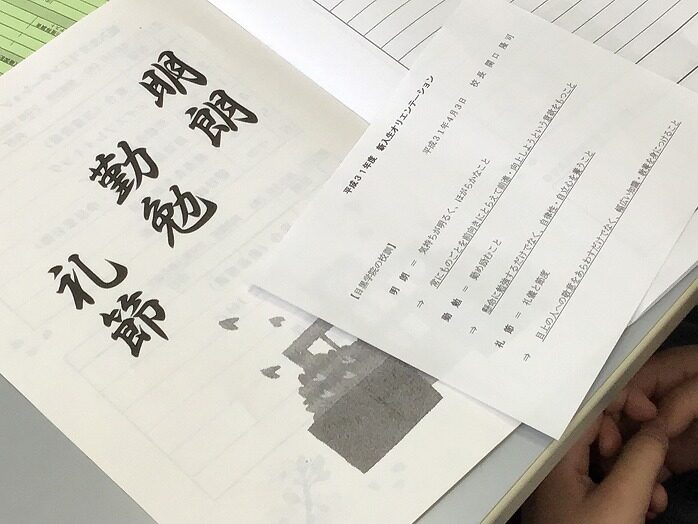 明朗
勤勉
礼節
平成31年度 新入生オリエンテーション
平成31年4月3日 校長 関口 隆司
【目黒学院の校訓】
明 朗 = 気持ちが明るく、ほがらかなこと
⇒ 常にものごとを前向きにとらえて前進・向上しようという意欲をもつこと
勤 勉 = 勤め励むこと
⇒ 懸命に勉強するだけでなく、自律性・自立心を養うこと
礼 節 = 礼儀と節度
⇒ 目上の人への敬意をあらわすだけでなく、幅広い知識・教養を身につけること